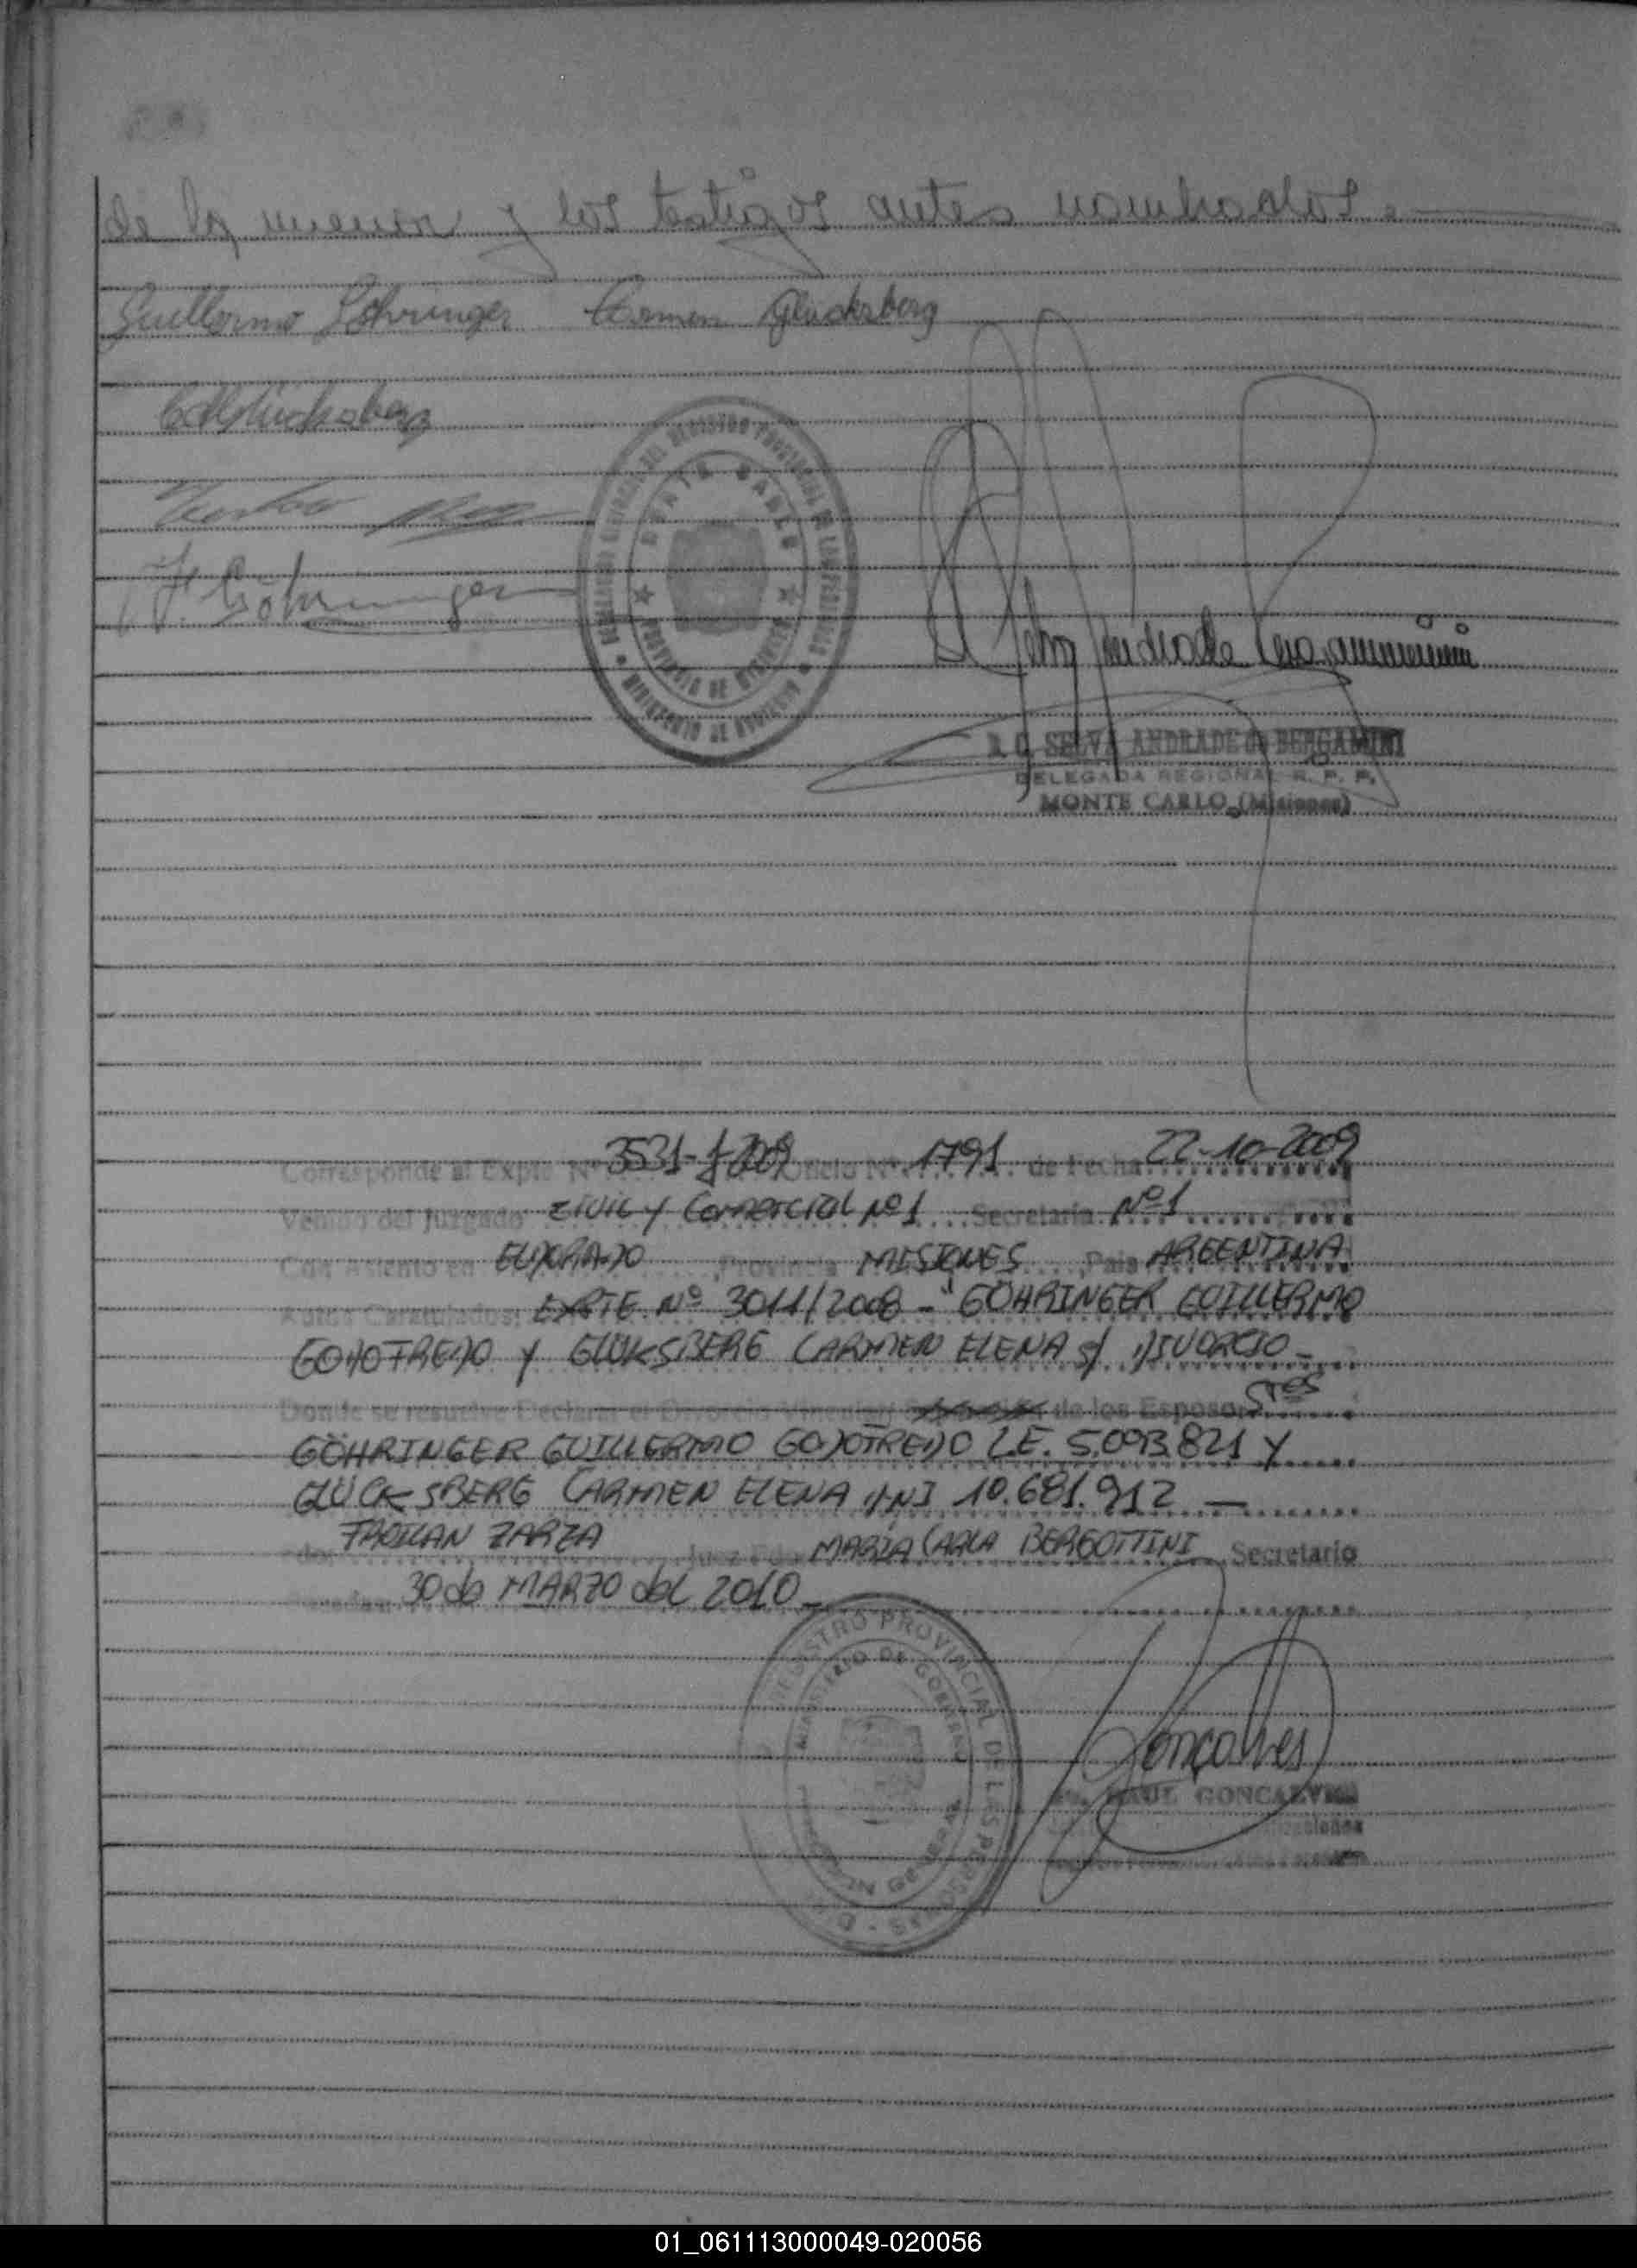 de la menor y los testigos antes nombrados.
Guillermo Göhringer Carmen Glücksberg
Glücksberg
H. Göhringer
MONTE CARLO
PROVINCIA DE MISIONES
Selva Andrade Bergamini
SELVA ANDRADE d. BERGAMINI
DELEGADA REGIONAL R. P. P.
MONTE CARLO (Misiones)
Corresponde al Expte. Nº 3531-J-2009 Oficio Nº 1791 de Fecha 22-10-2009
Venido del Juzgado CIVIL Y COMERCIAL Nº 1 Secretaria Nº 1
Con Asiento en ELDORADO, Provincia MISIONES, Pais ARGENTINA
Autos Caratulados: EXPTE Nº 3011/2008 - "GÖHRINGER GUILLERMO
GODOFREDO Y GLUKSBERG CARMEN ELENA s/ DIVORCIO -
Donde se resuelve Declarar el Divorcio Vincular de los Esposos STES
GÖHRINGER GUILLERMO GODOFREDO L.E. 5.093.821 Y
GLÜCKSBERG CARMEN ELENA DNI 10.681.912 —
FROILAN ZARZA Juez Fdo. MARÍA CARLA BERGOTTINI Secretario
30 de MARZO del 2010
REGISTRO PROVINCIAL DE LAS PERSONAS
MINISTERIO DE GOBIERNO
DIRECCION GENERAL
Gonçalves
RAUL GONCALVES
01_061113000049-020056